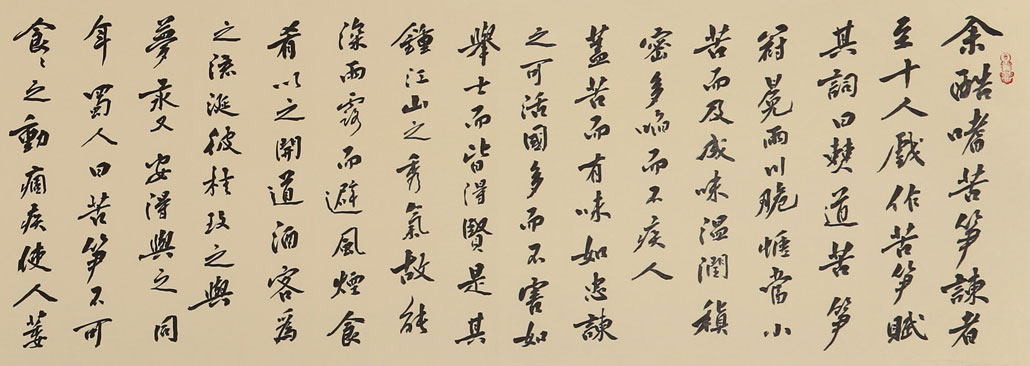 余酷嗜苦笋諫者
至十人戲作苦笋賦
其詞曰僰道苦笋
冠冕兩川脆惬當小
苦而及成味温潤稹
密多啗而不疾人
盖苦而有味如忠諫
之可活國多而不害如
舉士而皆得賢是其
鍾江山之秀氣故能
深雨露而避風煙食
肴以之開道酒客為
之流涎彼桂玫之與
夢汞又安得與之同
年蜀人曰苦笋不可
食々之動痼疾使人萎